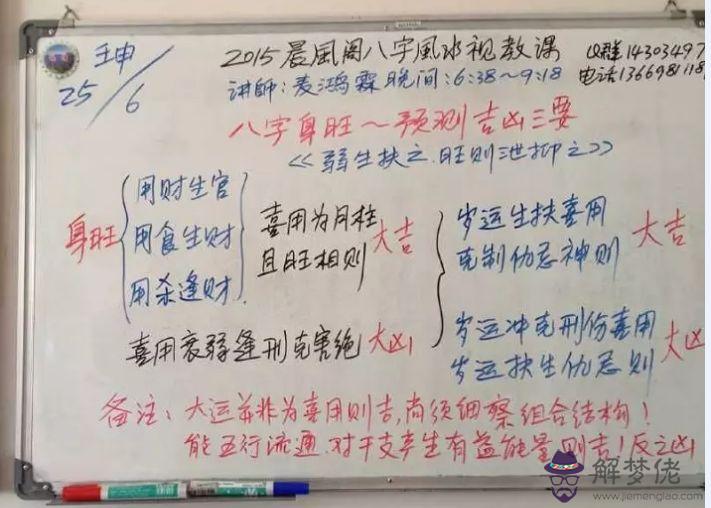 壬申
25/6
2015晨風阁八字風水视教课
讲師:麦鸿霖晚间:6:38~9:18
Q群14303497
电话1366981118
八字身旺~预测吉凶三要
<<弱生扶之.旺则泄抑之>>
身旺
用财生官
用食生财
用杀逢财
喜用为月柱
且旺相则
大吉
岁运生扶喜用
克制仇忌神则
大吉
喜用衰弱逢刑克害绝
大凶
岁运冲克刑伤喜用
岁运扶生仇忌则
大凶
备注:大运并非为喜用则吉,尚须细察组合结构!
能五行流通.对干支产生有益能量则吉!反之凶
解梦佬
www.jiemenglao.com